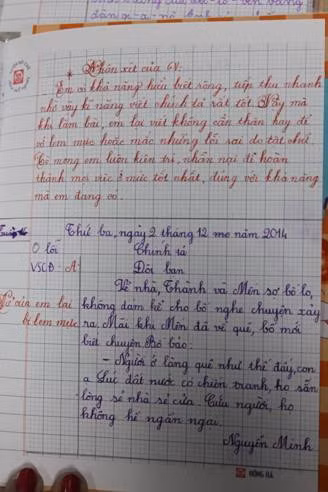 * Nhận xét của GV:
Em có khả năng hiểu biết rộng, tiếp thu nhanh
nhờ vậy kĩ năng viết chính tả rất tốt. Vậy mà
khi làm bài, em lại viết không cẩn thận hay để
vở lem mực hoặc mắc những lỗi sai do tật chữ.
Cô mong em luôn kiên trì, nhẫn nại để hoàn
thành mọi việc ở mức tốt nhất, đúng với khả năng
mà em đang có.
Thứ ba, ngày 2 tháng 12 năm 2014
0 lỗi Chính tả
VSCĐ: A Đôi bạn
Về nhà, Thành và Mến sợ bố lo,
Vở của em lại không dám kể cho bố nghe chuyện xảy
bị lem mực ra. Mãi khi Mến đã về quê, bố mới
biết chuyện. Bố bảo:
- Người ở làng quê như thế đấy, con
ạ. Lúc đất nước có chiến tranh, họ sẵn
lòng sẻ nhà sẻ cửa. Cứu người, họ
không hề ngần ngại.
Nguyễn Minh
HỒNG HÀ